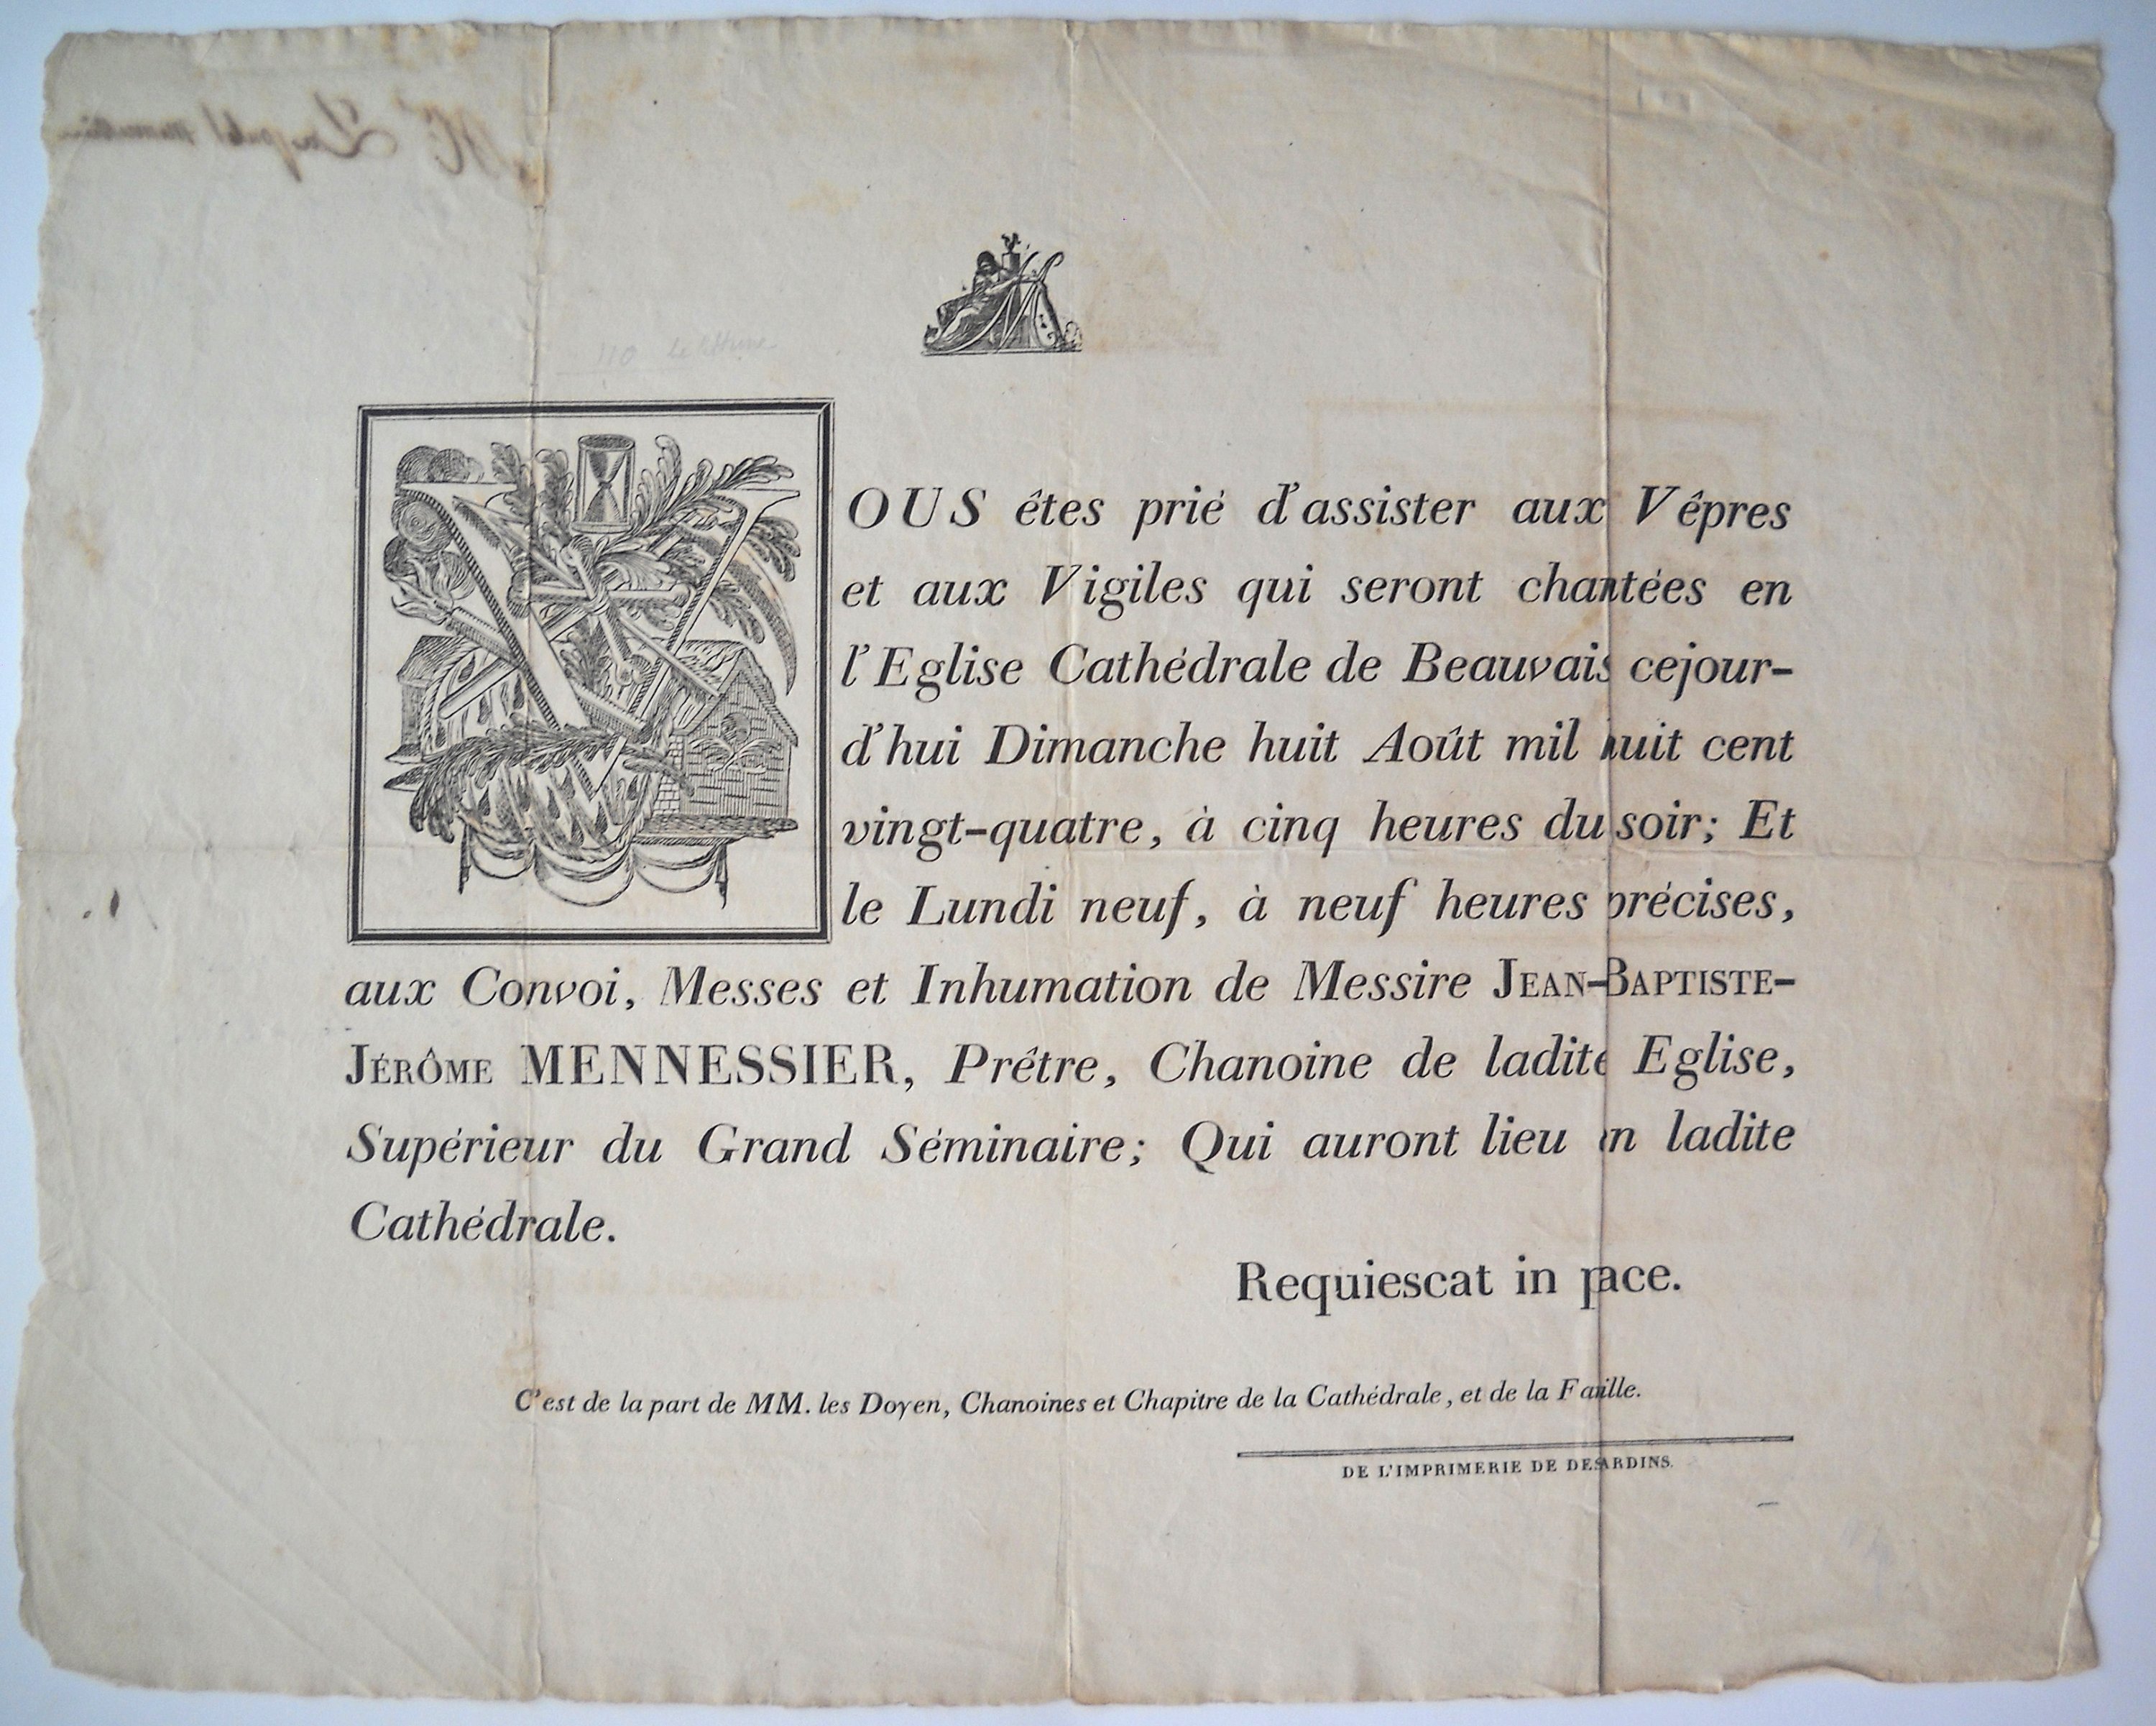 VOUS êtes prié d'assister aux Vêpres
et aux Vigiles qui seront chantées en
l'Eglise Cathédrale de Beauvais cejour-
d'hui Dimanche huit Août mil huit cent
vingt-quatre, à cinq heures du soir; Et
le Lundi neuf, à neuf heures précises,
aux Convoi, Messes et Inhumation de Messire JEAN-BAPTISTE-
JÉRÔME MENNESSIER, Prêtre, Chanoine de ladite Eglise,
Supérieur du Grand Séminaire; Qui auront lieu en ladite
Cathédrale.
Requiescat in pace.
C'est de la part de MM. les Doyen, Chanoines et Chapitre de la Cathédrale, et de la Famille.
DE L'IMPRIMERIE DE DESJARDINS.